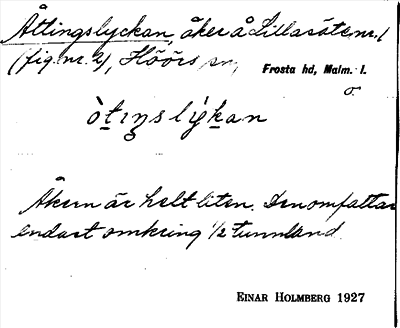 Åttingslyckan, åker å Lillasäte nr. 1
(fig. nr. 2), Höörs sn,
Frosta hd, Malm. l.
òtıŋslýkan
Åkern är helt liten. Den omfattar
endast omkring 1/2 tunnland.
EINAR HOLMBERG 1927